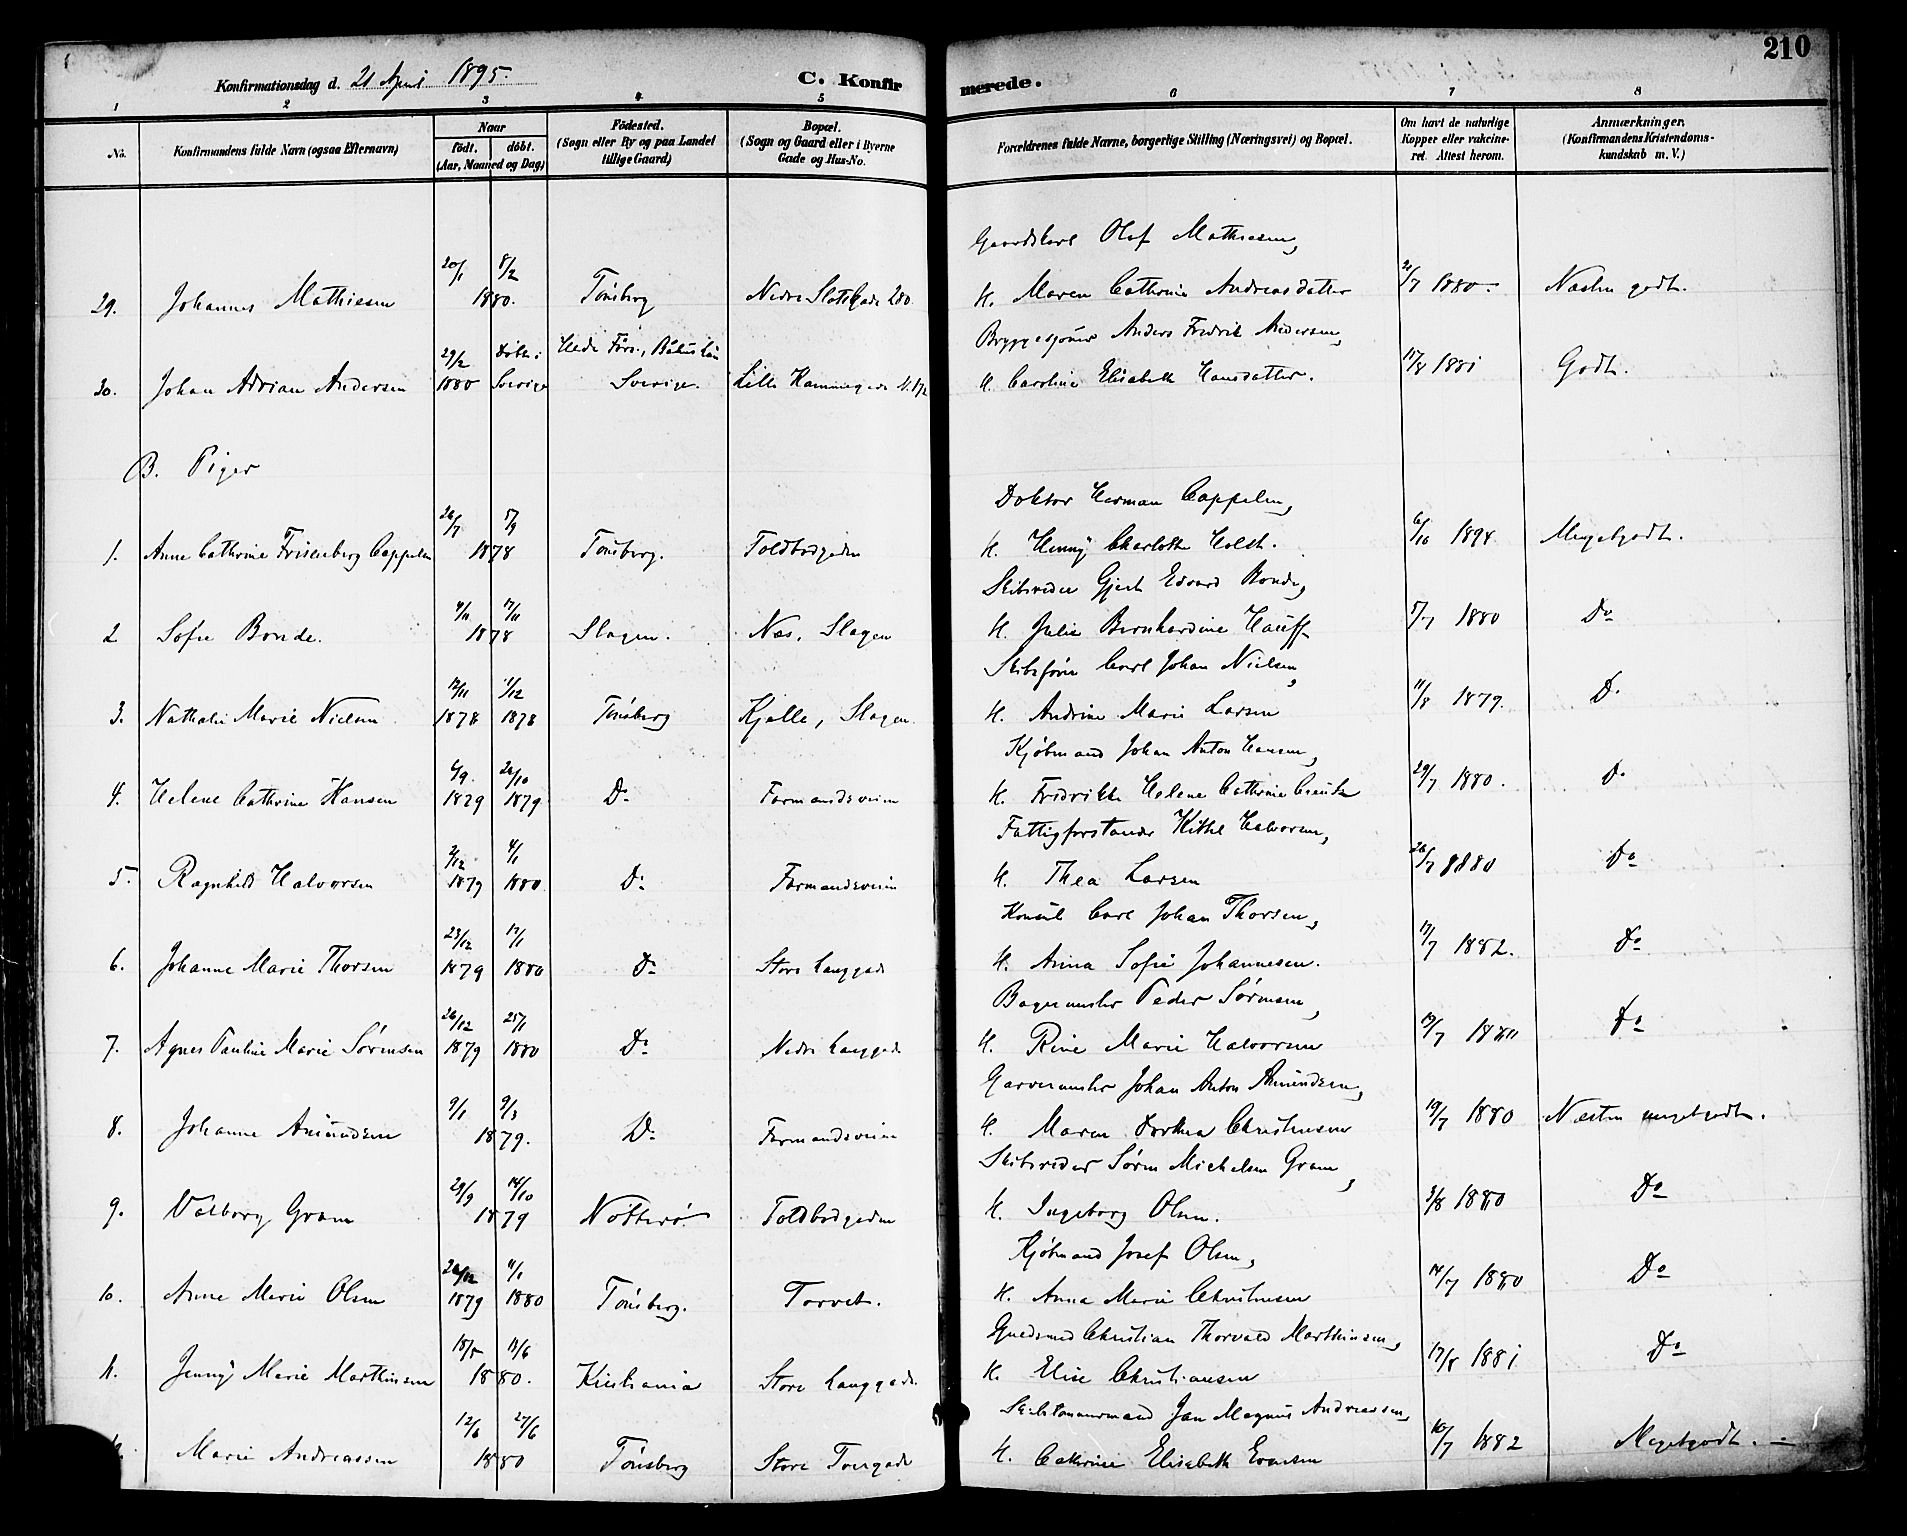 210
Konfirmationsdag d. 21 April 1895. C. Konfirmerede.
1 2 3 4 5 6 7 8
No. Konfirmandens fulde Navn (ogsaa Efternavn) Naar født. døbt. (Aar, Maaned og Dag) Fødested. (Sogn eller By og paa Landet tillige Gaard) Bopæl. (Sogn og Gaard eller i Byerne Gade og Hus-No. Forældrenes fulde Navne, borgerlige Stilling (Næringsvei) og Bopæl. Om havt de naturlige Kopper eller vakcineret. Attest herom. Anmærkninger. (Konfirmandens Kristendomskundskab m. V.)
Gaardskarl Olaf Mathiesen,
29. Johannes Mathiesen 20/1 8/2 1880. Tønsberg Nedre Slotsgade 280. H. Maren Cathrine Andreasdatter 21/7 1880. Næsten godt.
Bryggesjouer Anders Fredrik Andersen,
30. Johan Adrian Andersen 29/2 1880 Døbt i Sverige Hede Førs., Båhus Län Sverige. Lille Kammegade H. Caroline Elisabeth Hansdatter. 17/8 1881 Godt.
B. Piger
Doktor Herman Cappelen,
1. Anne Cathrine Frisenberg Cappelen 26/7 5/9 1878 Tønsberg. Toldbodgaden H. Henny Charlotte Holst. 6/10 1894 Megetgodt.
Skibsreder Gjert Edvard Bonde,
2 Sofie Bonde. 4/11 17/11 1878 Slagen. Næs, Slagen H. Julie Bernhardine Hauff 5/7 1880 Do
Skibsfører Carl Johan Nielsen,
3. Nathalie Marie Nielsen 12/11 1878 1/12 1878 Tønsberg Kjelle, Slagen. H. Andrine Marie Larsen 11/8 1879. Do
Kjøbmand Johan Anton Hansen,
4. Helene Cathrine Hansen 6/9. 1879 26/10 1879 Do Farmandsveien H. Fredrikke Helene Cathrine 29/7 1880. Do
Fattigforstander Kittel Halvorsen,
5. Ragnhild Halvorsen 2/12 1879 4/1 1880 Do Farmandsveien H. Thea Larsen 26/7 1880 Do
Konsul Carl Johan Thorsen,
6. Johanne Marie Thorsen 23/12 1879 17/1 1880 Do Store Langgade H. Anna Sofie Johannesen. 17/7 1882. Do
Bagermester Peder Sørensen,
7. Agnes Pauline Marie Sørensen 26/12 1879 25/1 1880 Do Nedre Langgade H. Rine Marie Halvorsen 19/7 1880 Do
Garvermester Johan Anton Amundsen,
8. Johanne Amundsen 9/1 9/3 1879. Do Farmandsveien H. Maren Dorthea Christensen 19/7 1880 Næsten megetgodt.
Skibsreder Søren Michelsen Gram,
9. Valborg Gram 29/9 14/10 1879 Nøtterø Toldbodgaden H. Ingeborg Olsen. 3/8 1880 Do
Kjøbmand Josef Olsen,
10. Anne Marie Olsen 26/12 1879 11/1 1880 Tønsberg. Torvet. H. Anna Marie Christensen 14/7 1880 Do
Christian Thorvald Marthinsen,
11. Jenny Marie Marthinsen 18/5 13/6 1880. Kristiania Store Langgade. H. Elise Christiansen 17/8 1881 Do
Skibstømmermand Jan Magnus Andreassen,
Marie Andreassen 12/6 27/6 1880 Tønsberg Store Torvgade H. Cathrine Elisabeth Evensen 16/7 1882 Megetgodt.